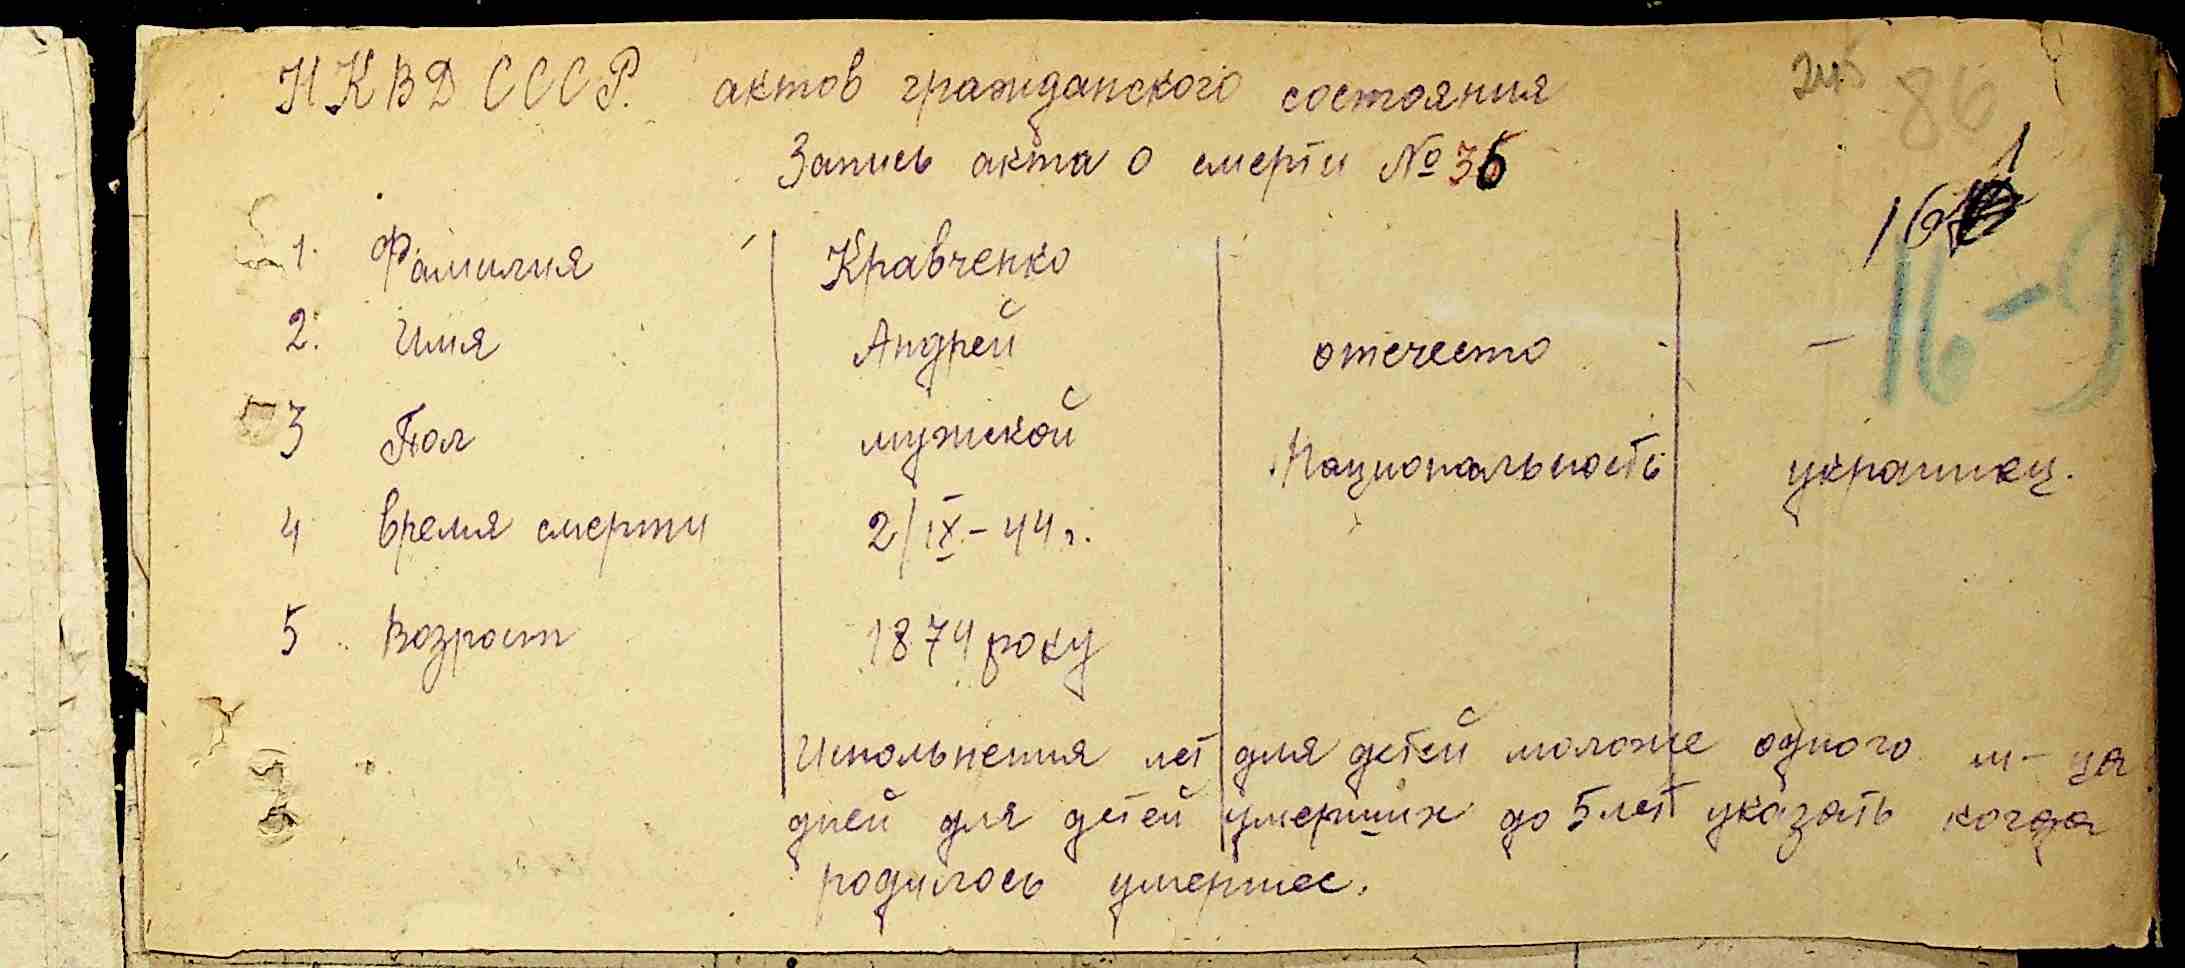 НКВД СССР. актов гражданского состояния
86
Запись акта о смерти № 36
161
16-9
1. Фамилия Кравченко
2. Имя Андрей отечесто -
3 Пол мужской Национальность украинец.
4 Время смерти 2/IX-44 г.
5 Возраст 1874 року
Испольнения лет для детей моложе одного м-ца
дней для детей умерших до 5 лет указать когда
родилось умершее.